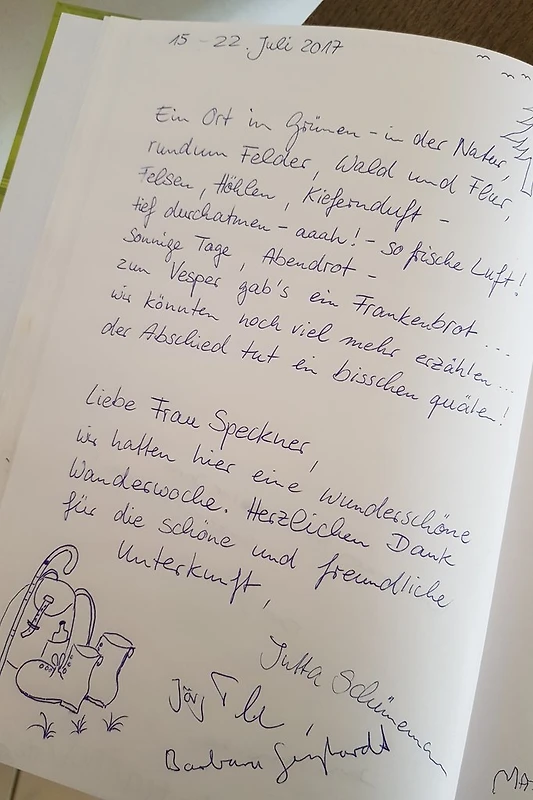 15 - 22. Juli 2017
Ein Ort im Grünen - in der Natur,
rundum Felder, Wald und Flur,
Felsen, Höhlen, Kiefernduft -
tief durchatmen - aaah! - so frische Luft!
Sonnige Tage, Abendrot -
zum Vesper gab's ein Frankenbrot...
wir könnten noch viel mehr erzählen...
der Abschied tut ein bisschen quälen!
Liebe Frau Speckner,
wir hatten hier eine wunderschöne
Wanderwoche. Herzlichen Dank
für die schöne und freundliche
Unterkunft,
Jutta Schünemann
Jörg
Barbara
MA